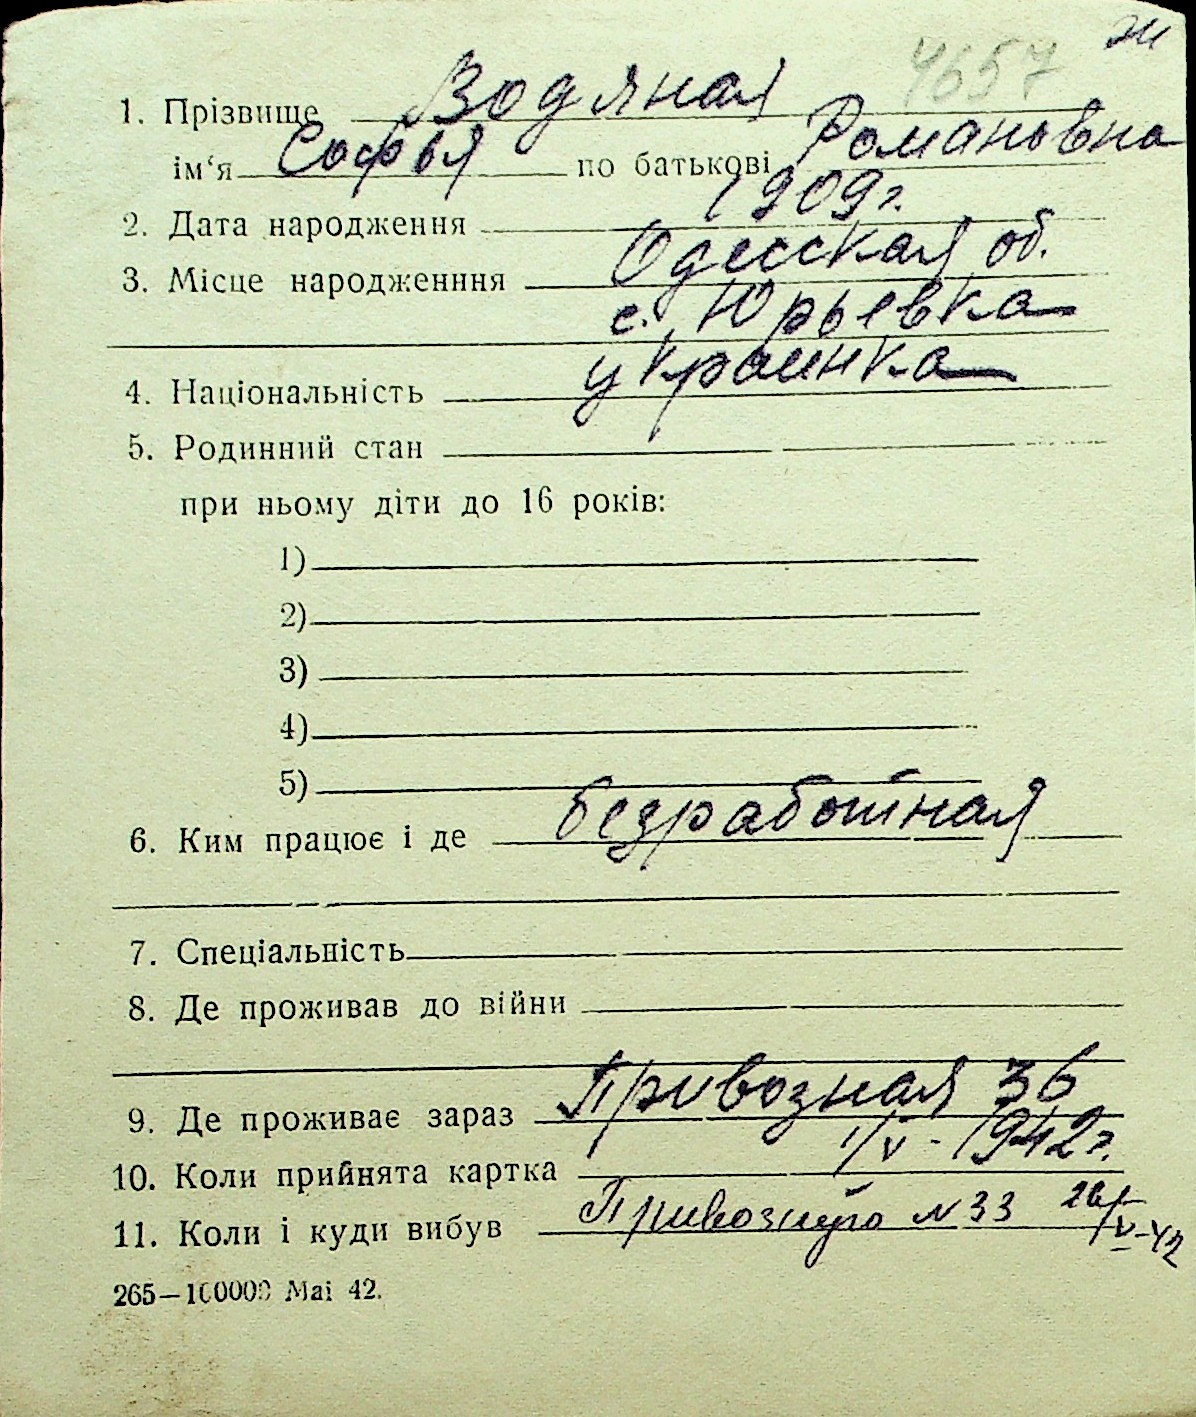 4657
1. Прізвище Водяная
ім‘я Софья по батькові Романовна
2. Дата народження 1909 г.
3. Місце народженння Одесская об.
с. Юрьевка
4. Національність украинка
5. Родинний стан
при ньому діти до 16 років:
1)
2)
3)
4)
5)
6. Ким працює і де безработная
7. Спеціальність
8. Де проживав до війни
9. Де проживає зараз Привозная 36
10. Коли прийнята картка 1/V - 1942 г.
11. Коли і куди вибув Привозную N 33 26/V-42
265—100000 Маі 42.